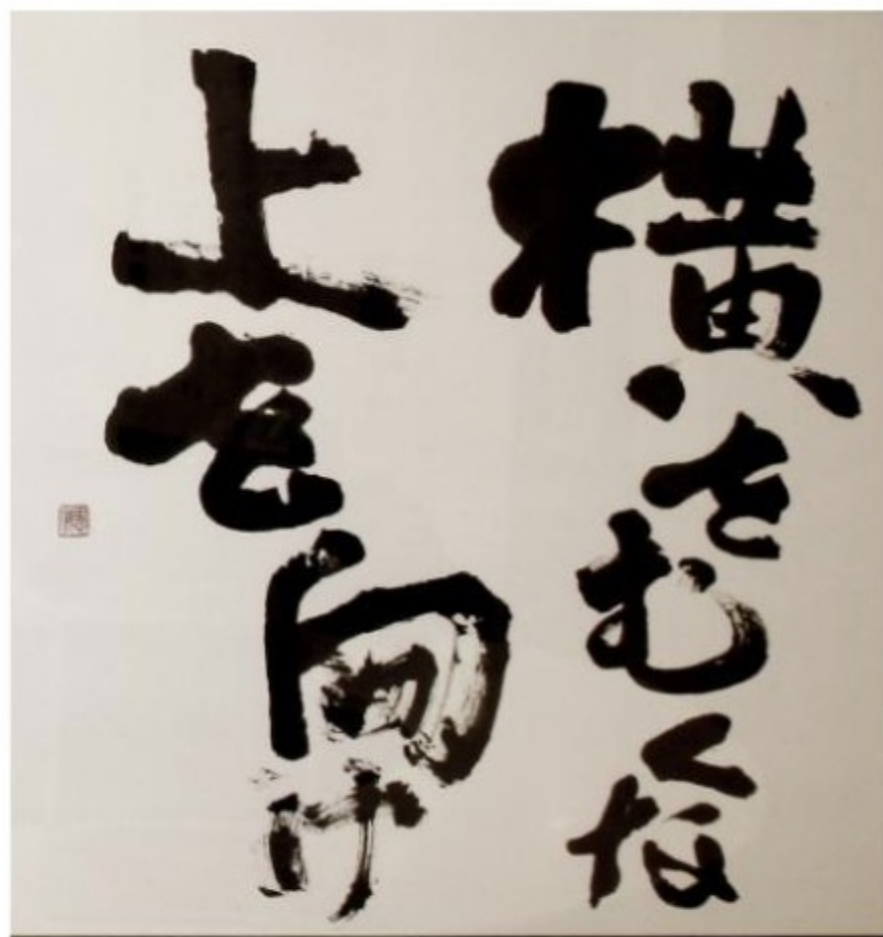 横をむくな
上を向け